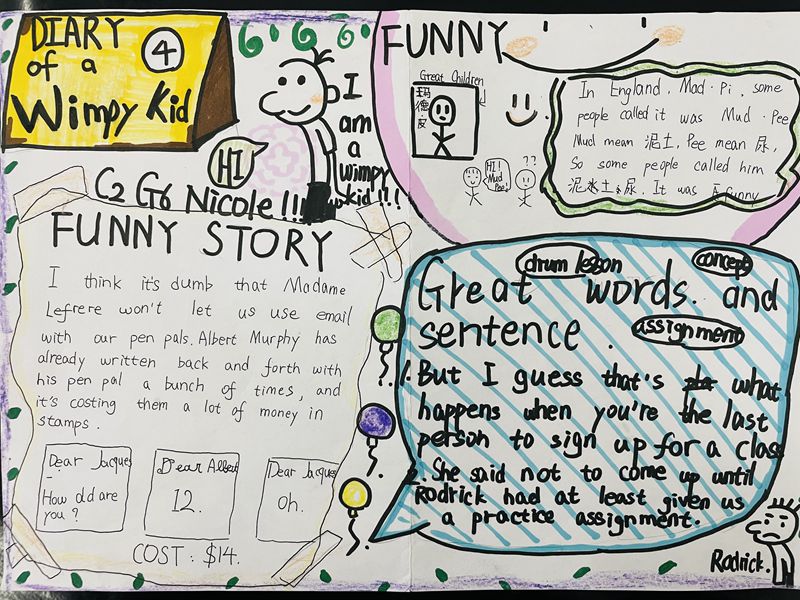 DIARY
of a
Wimpy Kid
4
I
am
a
wimpy
kid!!!
HI
C2 G6 Nicole!!!
FUNNY STORY
I think it's dumb that Madame
Lefrere won't let us use email
with our pen pals. Albert Murphy has
already written back and forth with
his pen pal a bunch of times, and
it's costing them a lot of money in
stamps.
Dear Jacques
How old are
you?
Dear Albert
12.
Dear Jacques
Oh.
COST: $14.
FUNNY
Great Children
玛德·皮
HI!
Mud
Pee!
??
In England, Mad·Pi, some
people called it was Mud·Pee
Mud mean 泥土, Pee mean 尿,
So some people called him
泥土尿. It was funny
drum lesson
concept
Great words. and
sentence.
assignment
1. But I guess that's what
happens when you're the last
person to sign up for a class
2. She said not to come up until
Rodrick had at least given us
a practice assignment.
Rodrick.